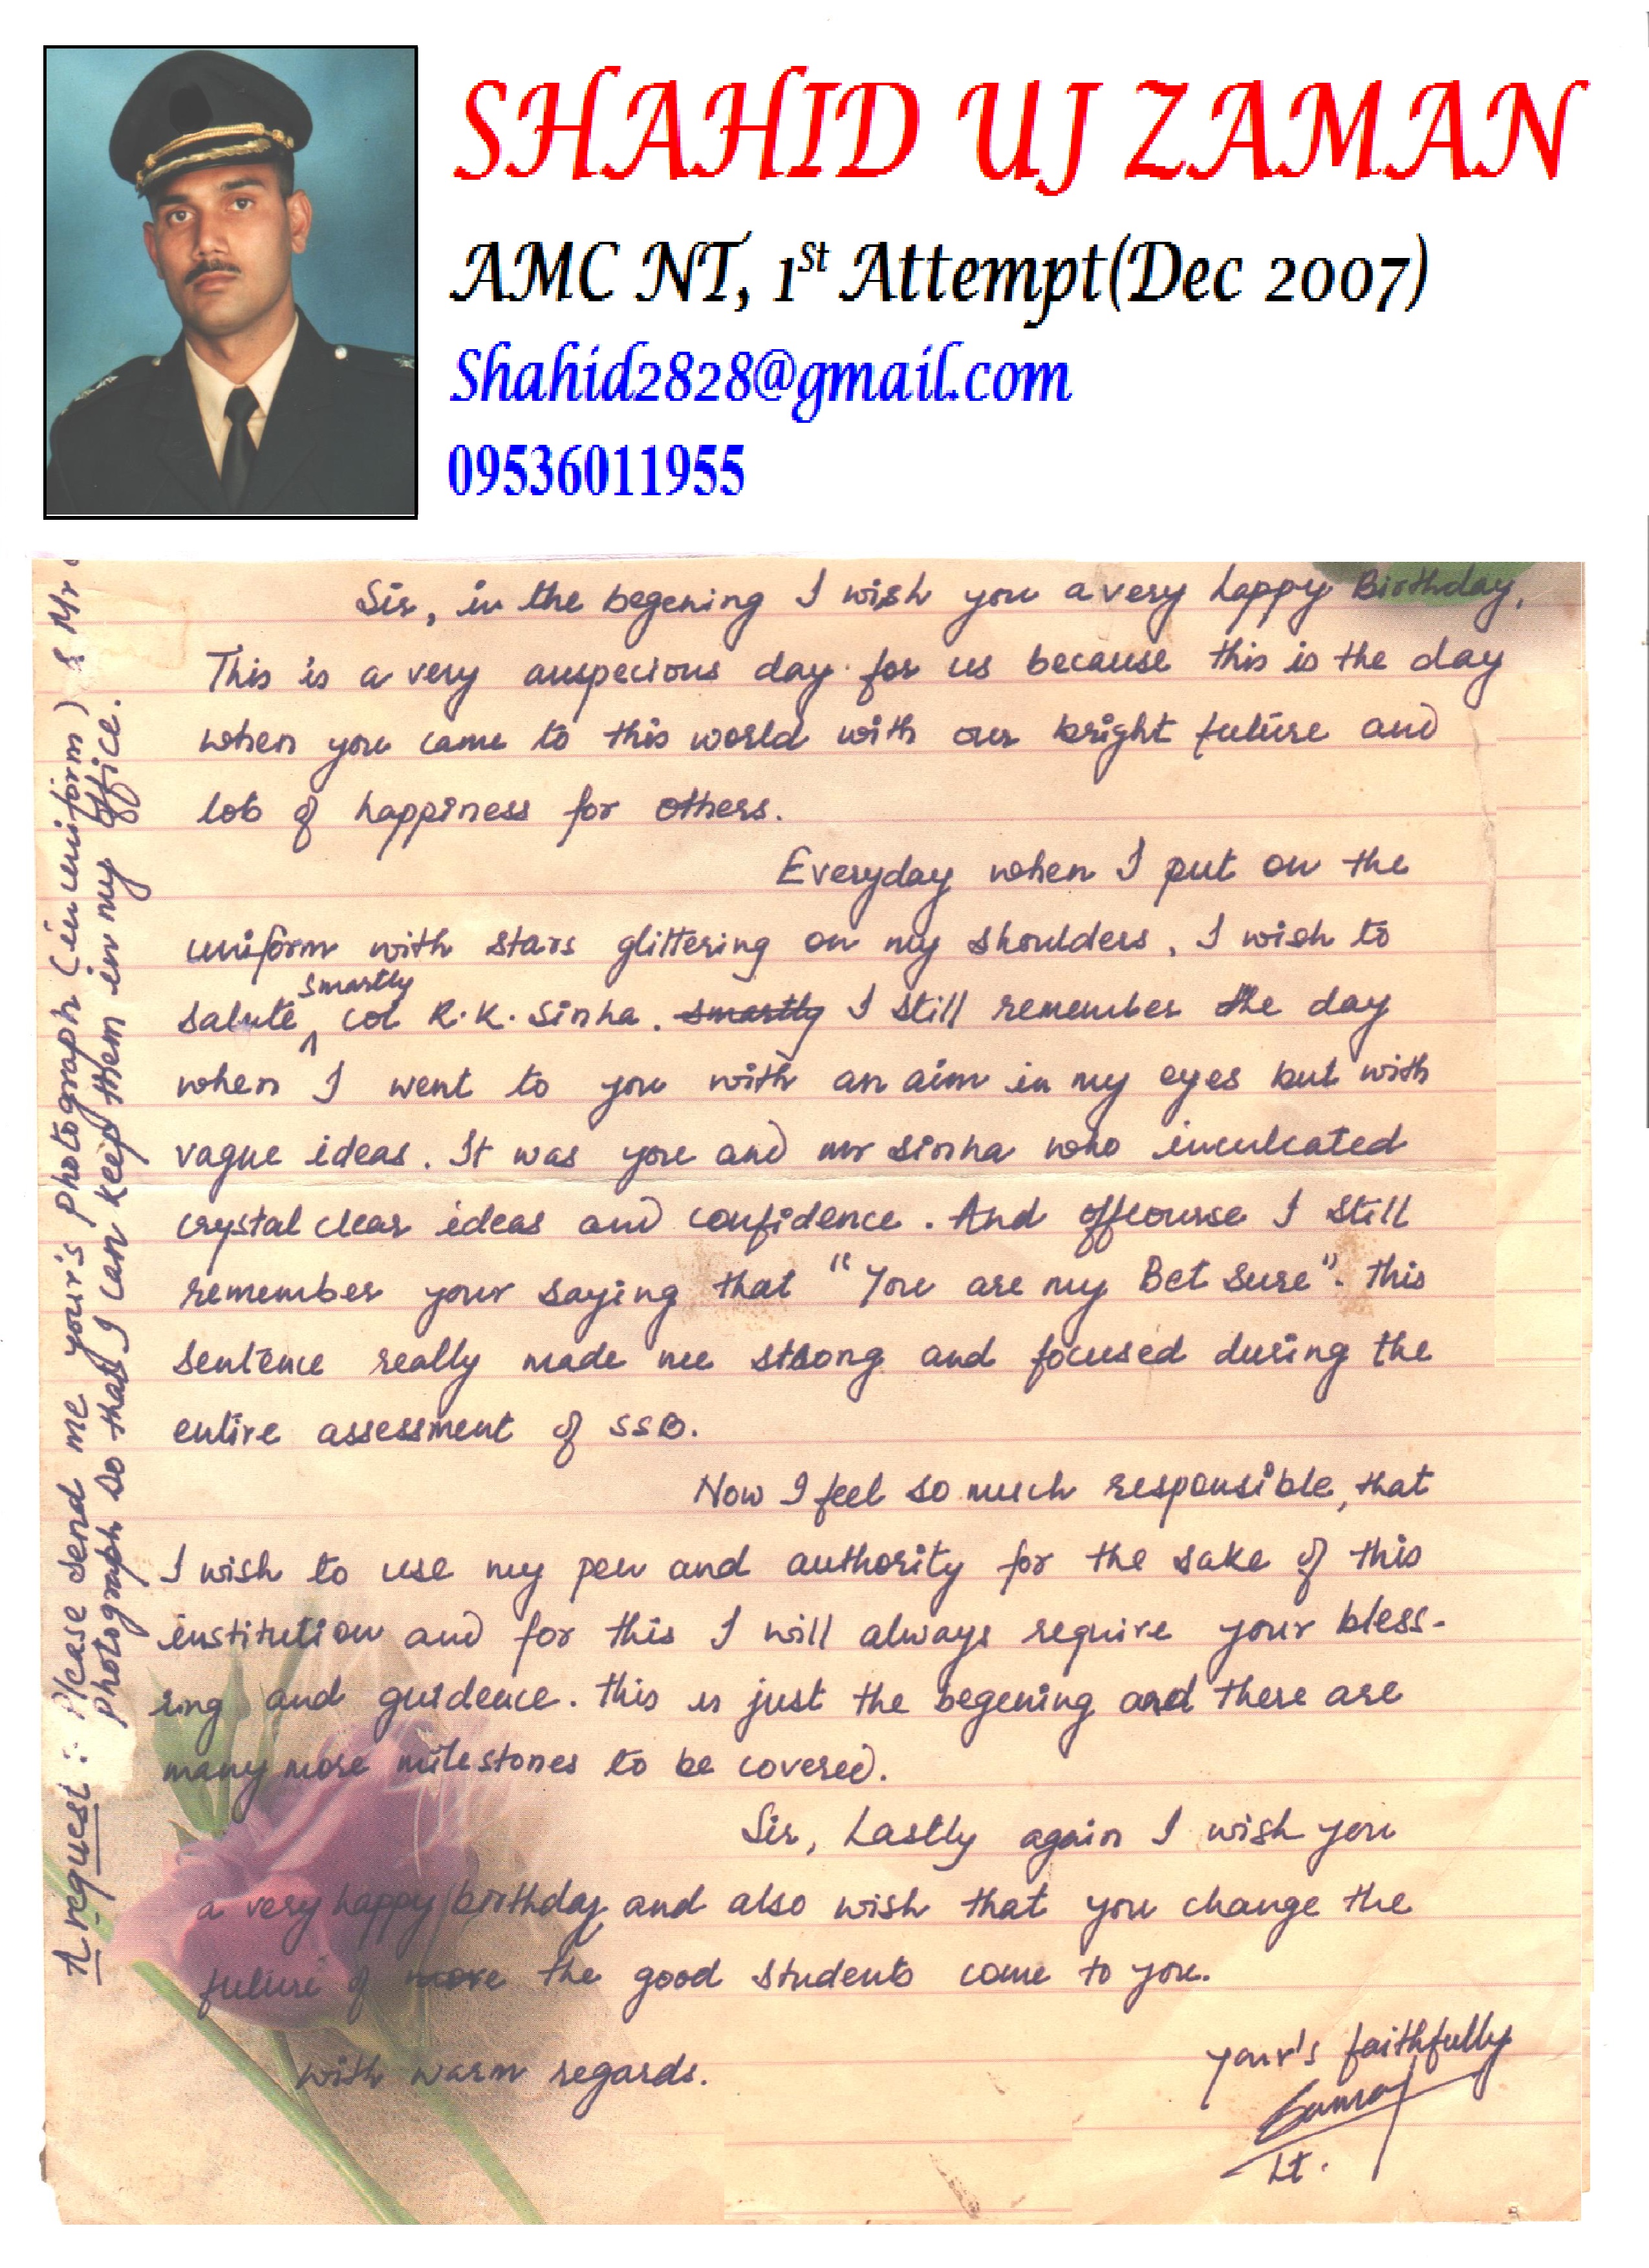 SHAHID UJ ZAMAN
AMC NT, 1st Attempt(Dec 2007)
Shahid2828@gmail.com
09536011955
Sir, in the begening I wish you a very happy Birthday,
This is a very auspecious day for us because this is the day
when you came to this world with our bright future and
lots of happiness for others.
Everyday when I put on the
uniform with stars glittering on my shoulders, I wish to
smartly
salute ^ col R.K. Sinha. smartly I still remember the day
when I went to you with an aim in my eyes but with
vague ideas. It was you and mr sinha who inculcated
crystal clear ideas and confidence. And offcourse I still
remember your saying that "You are my Bet Sure". this
sentence really made me strong and focused during the
entire assessment of SSB.
Now I feel so much responsible, that
I wish to use my pen and authority for the sake of this
institution and for this I will always require your bless-
ing and guidence. this is just the begening and there are
many more milestones to be covered.
Sir, Lastly again I wish you
a very happy birthday and also wish that you change the
future of more the good students come to you.
with warm regards.
your's faithfully
Lt.
A request : Please send me your's photograph (in uniform) & Mr
photograph so that I can keep them in my office.